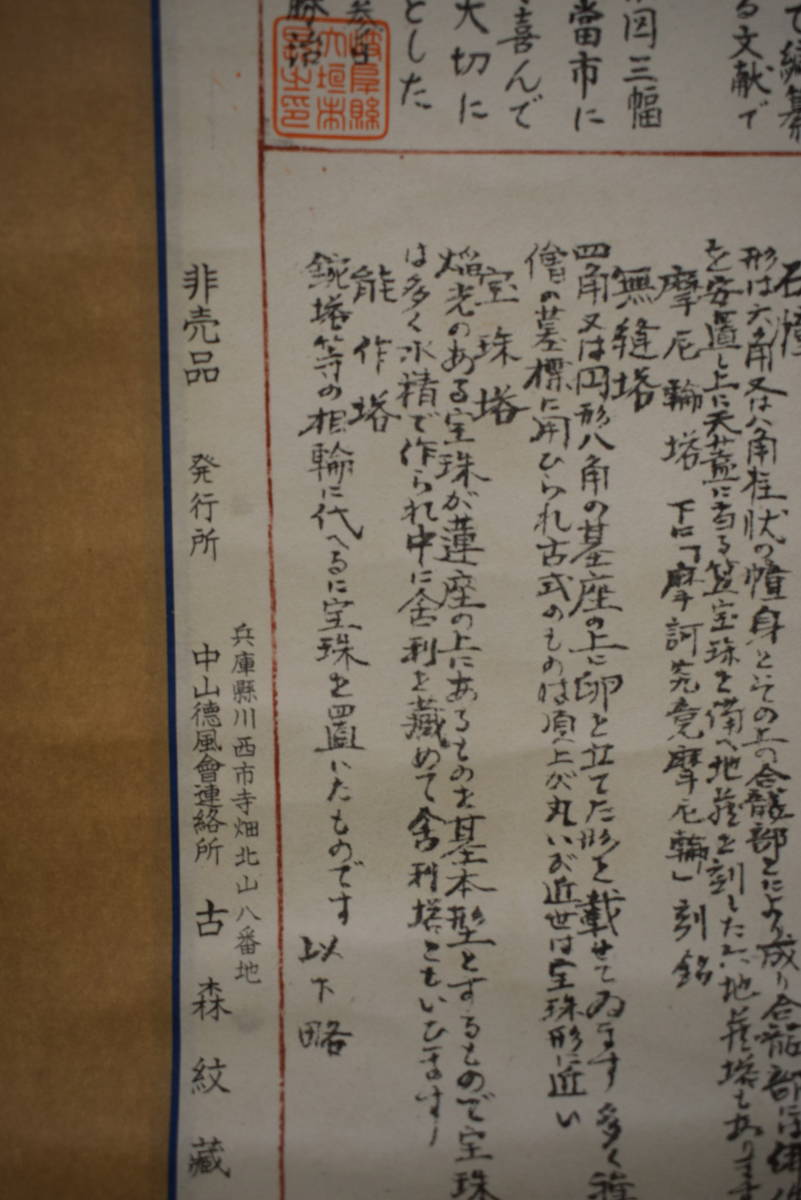 て編纂
る文献で
図三幅
當市に
喜んで
大切に
とした
勝治
岐阜縣
大垣市
長之印
石幢
形は六角又は八角柱状の幢身とその上の合龕部とにより成り合龕部には佛
を安置し上に天蓋に当る笠宝珠を備へ地蔵を刻した六地蔵塔もあります
摩尼輪塔 下に「摩訶究竟摩尼輪」刻銘
無縫塔
四角又は円形八角の基座の上に卵を立てた形を載せてゐます多く禅
僧の墓標に用ひられ古式のものは頂上が丸いが近世は宝珠形に近い
宝珠塔
焔光のある宝珠が蓮座の上にあるものを基本型とするもので宝珠
は多く水精で作られ中に舎利を藏めて舎利塔ともいひます
能作塔
銃塔等の相輪に代へるに宝珠を置いたものです 以下略
非売品 発行所
兵庫縣川西市寺畑北山八番地
中山德風會連絡所 古森紋藏